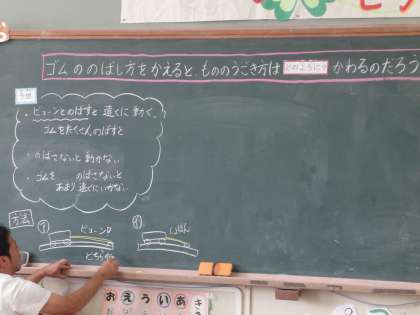 ゴムののばし方をかえると、もののうごき方はどのようにかわるのだろう
予想
・ビューンとのばすと遠くに動く。
ゴムをたくさんのばすと
・のばさないと動かない
・ゴムを のばさないと
あまり遠くにいかない
方法
①
ビューン
おえういあ
き